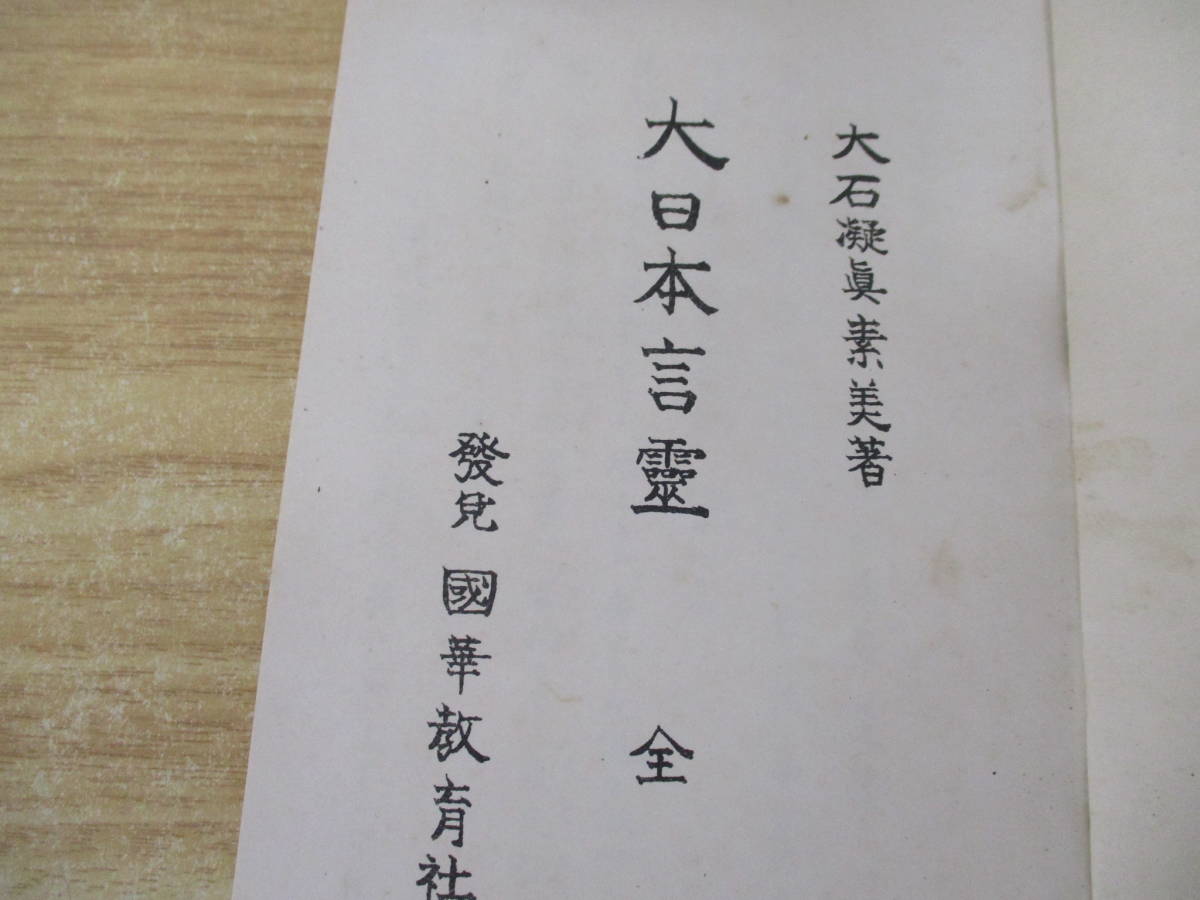 大石凝眞素美著
大日本言靈 全
發兌 國華敎育社